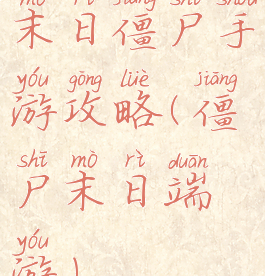 mò rì jiāng shī shǒu
末日僵尸手
yóu gōng lüè jiāng
游攻略(僵
shī mò rì duān
尸末日端
yóu
游)